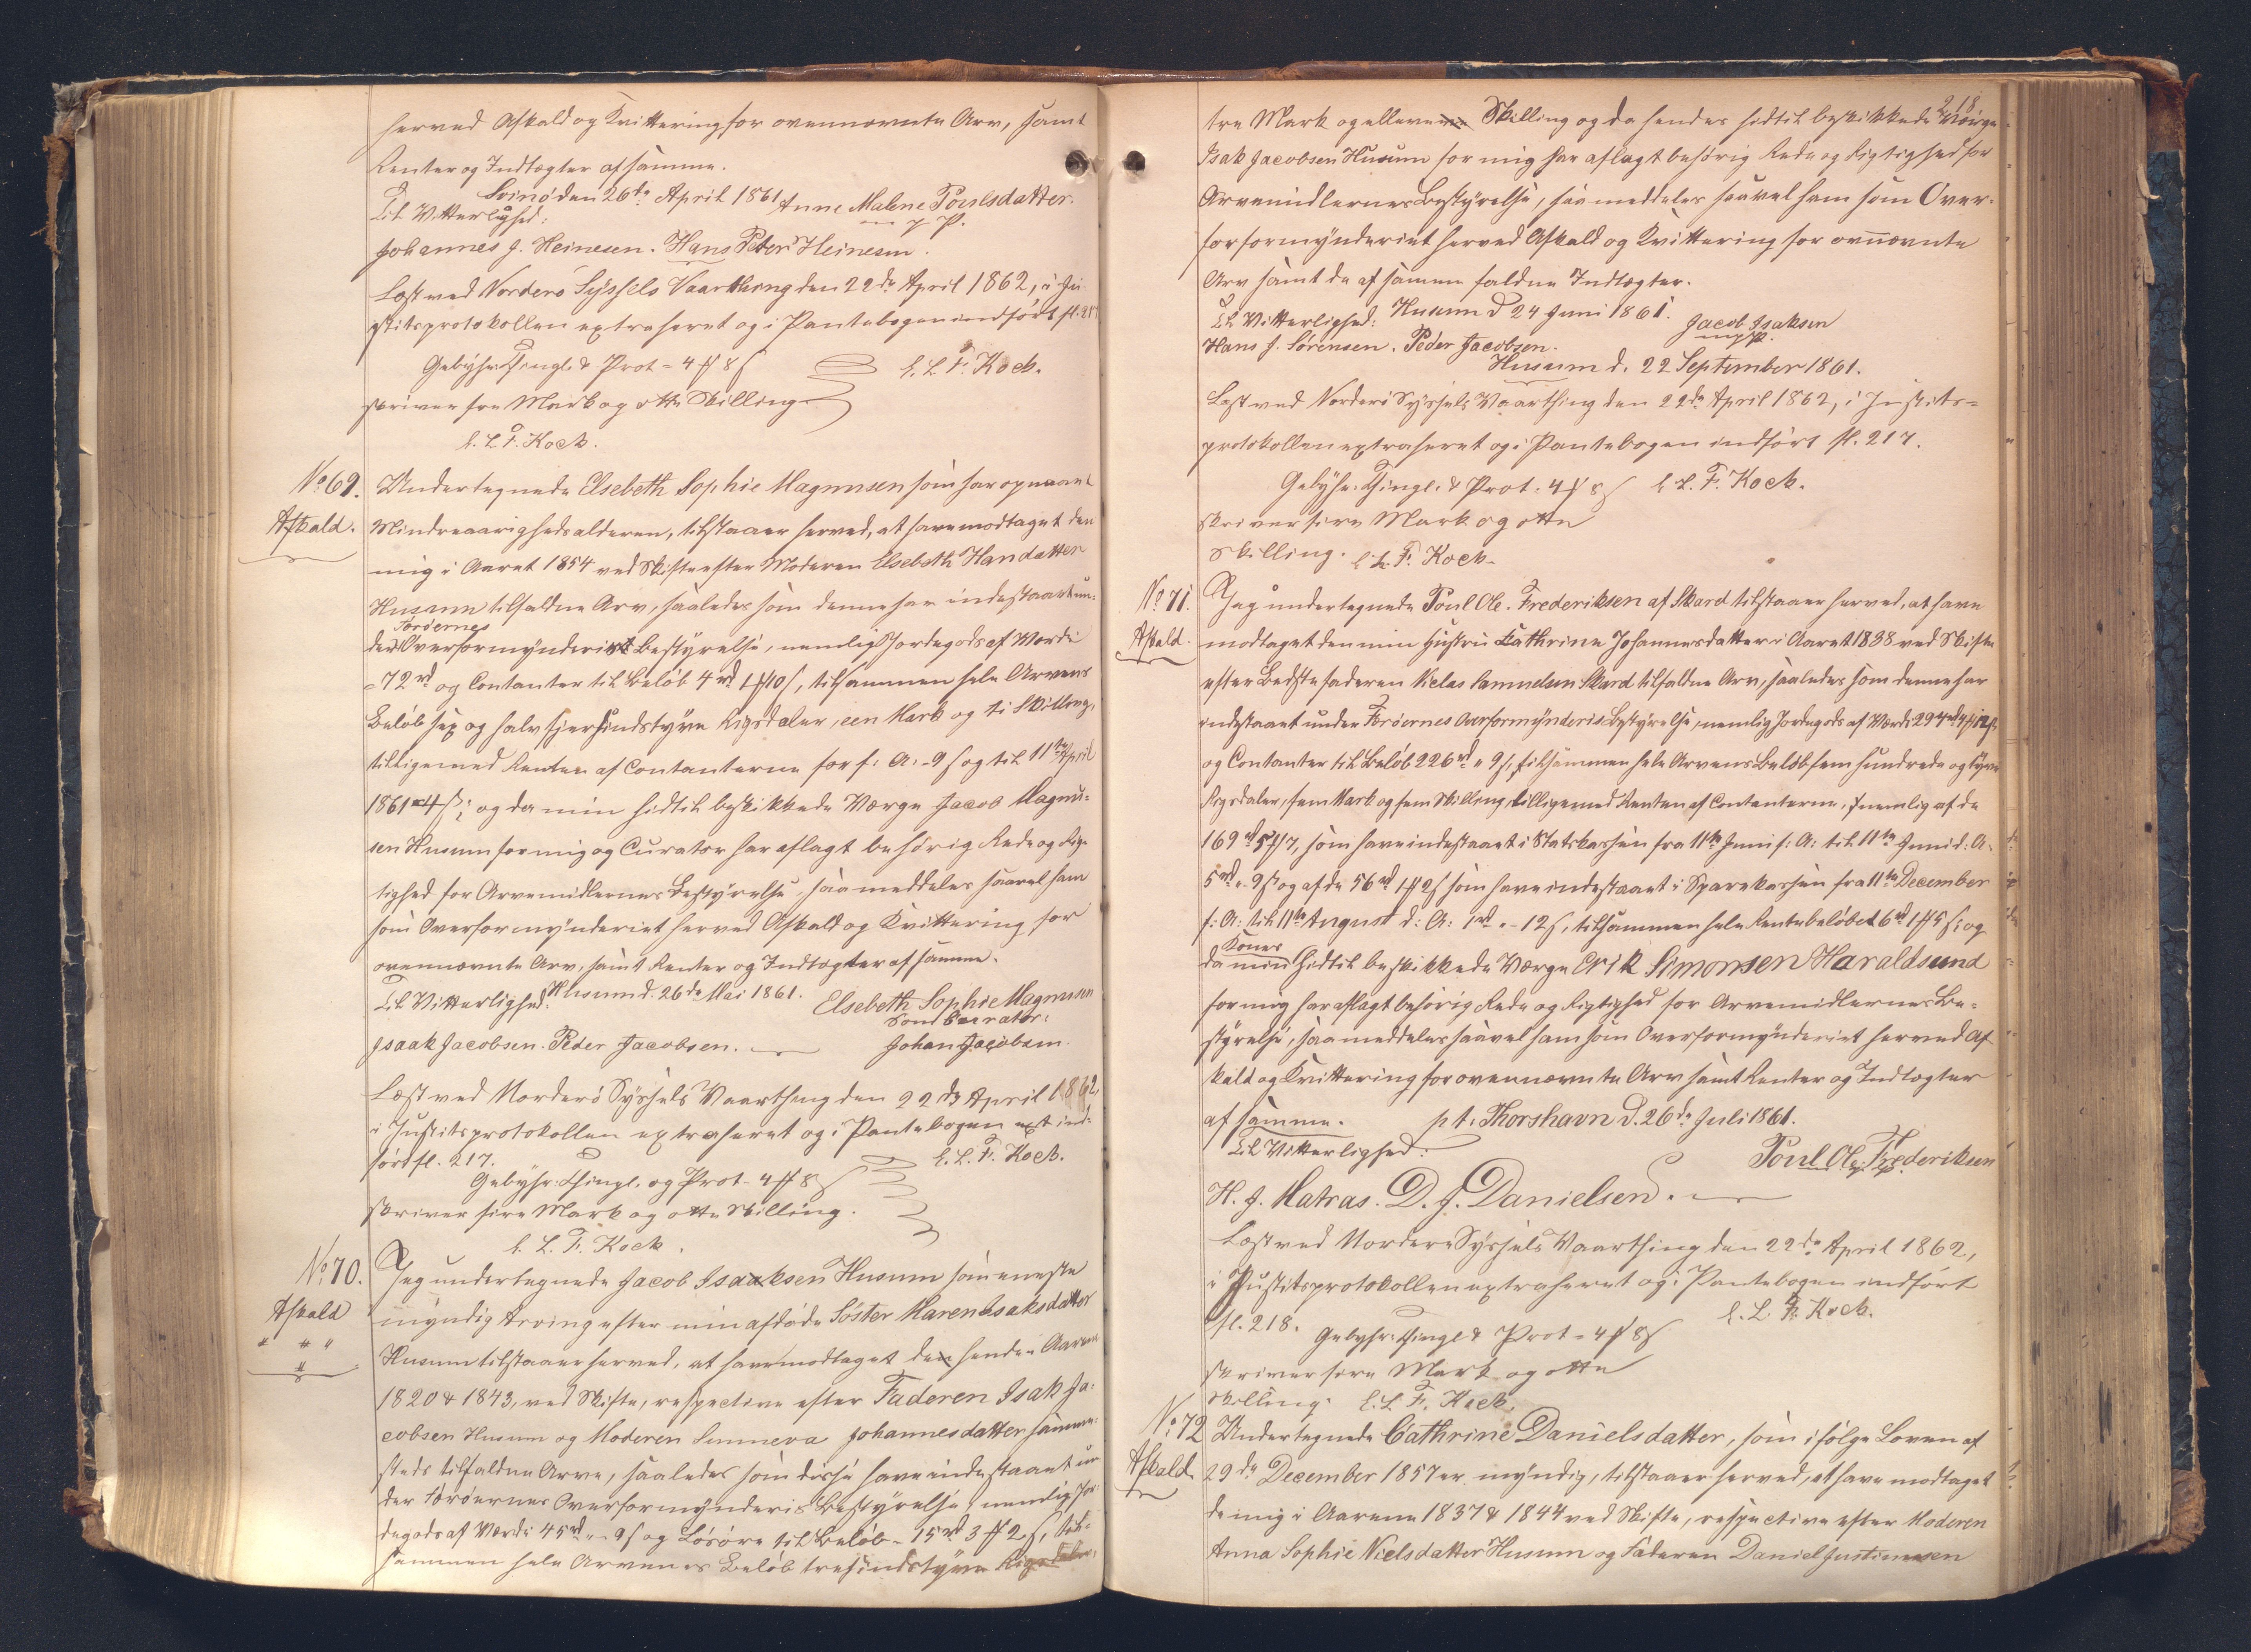 herved Afkald og Kvittering for ovennævnte Arv, samt
Renter og Indtægter af samme.
Svinø den 26de April 1861
Til Vitterlighed: Anne Malene Poulsdatter.
m. p. P.
Johannes J. Heinesen. Hans Peter Heinesen.
Læst ved Norderø Syssels Vaarthing den 22de April 1862, i Ju-
stitsprotokollen extraheret og i Pantebogen indført fl. 217
Gebyhr: Thingl. & Prot = 4 # 8 ß E. L. F. Koch.
skriver fire Mark og otte Skilling
E. L. F. Koch.
No 69.
Afkald.
Undertegnede Elsebeth Sophie Magnusen som har opnaaet
Mindreaarighedsalderen, tilstaaer herved, at have modtaget den
mig i Aaret 1854 ved Skifte efter Moderen Elsebeth Handatter
Husum tilfaldne Arv, saaledes som denne har indestaaet un-
Færøernes
der Overformynderiets Bestyrelse, nemlig Jordegods af Værdi
72 rd og Contanter til Beløb 4 rd 1 # 10 ß, tilsammen hele Arvens
Beløb sex og halvfjersindstyve Rigsdaler, een Mark og ti Skilling,
tilligemed Renten af Contanterne for f: A: - 9 ß og til 11te April
1861 = 4 ß; og da min hidtil beskikkede Værge Jacob Magnu-
sen Husum for mig og Curator har aflagt behørig Rede og Rig-
tighed for Arvemidlernes Bestyrelse, saa meddeles saavel ham
som Overformynderiet herved Afkald og Kvittering for
ovennævnte Arv, samt Renter og Indtægter af samme.
Husum d. 26de Mai 1861.
Til Vitterlighed: Elsebeth Sophie Magnusen
Som Curator:
Isaak Jacobsen. Peder Jacobsen. Johan Jacobsen
Læst ved Norderø Syssels Vaarthing den 22de April 1862,
i Justitsprotokollen extraheret og i Pantebogen ind-
ført fl. 217. E. L. F. Koch.
Gebyhr: Thingl. og Prot - 4 # 8 ß
skriver fire Mark og otte Skilling.
E. L. F. Koch.
No 70.
Afkald
Jeg undertegnede Jacob Isaaksen Husum som eneste
myndig Arving efter min afdøde Søster Maren Isaksdatter
Husum tilstaaer herved, at have modtaget den hende i Aarene
1820 & 1843, ved Skifte, respective efter Faderen Isak Ja-
cobsen Husum og Moderen Sunneva Johannesdatter samme-
steds tilfaldne Arve, saaledes som disse have indestaaet un-
der Færøernes Overformynderis Bestyrelse, nemlig Jor-
degods af Værdi 45 rd " 9 ß og Løsøre til Beløb - 15 rd 3 # 2 ß, til-
sammen hele Arvenes Beløb tresindstyve Rigsdaler,
218
tre Mark og elleve Skilling og da hendes hidtil beskikkede Værge
Isak Jacobsen Husum for mig har aflagt behørig Rede og Rigtighed for
Arvemidlernes Bestyrelse, saa meddeles saavel ham som Over-
forformynderiet herved Afkald og Kvittering for ovennævnte
Arv samt de af samme faldne Indtægter.
Husum d 24 Juni 1861.
Til Vitterlighed: Jacob Isaksen
Hans J. Sørensen. Peder Jacobsen. m p.
Husum d. 22 September 1861.
Læst ved Norderø Syssels Vaarthing den 22de April 1862, i Justits-
protokollen extraheret og i Pantebogen indført fl. 217.
Gebyhr: Thingl. & Prot. 4 # 8 ß E. L. F. Koch.
skriver fire Mark og otte
Skilling. E. L. F. Koch.
No 71.
Afkald.
Jeg undertegnede Poul Ole Frederiksen af Skard tilstaaer herved, at have
modtaget den min Hustru Cathrine Johannesdatter i Aaret 1838 ved Skifte
efter Bedstefaderen Niclas Samuelsen Skard tilfaldne Arv, saaledes som denne har
indestaaet under Færøernes Overformynderis Bestyrelse, nemlig Jordegods af Værdi 294 rd 4 # 12 ß
og Contanter til Beløb 226 rd " 9 ß, tilsammen hele Arvens Beløb fem hundrede og tyve
Rigsdaler, fem Mark og fem Skilling, tilligemed Renten af Contanterne, nemlig af de
169 rd 5 # 7, som have indestaaet i Statskassen fra 11te Juni f: A: til 11te Juni d: A:
5 rd " 9 ß og af de 56 rd 1 # 2 ß som have indestaaet i Sparekassen fra 11te December
f: A: til 11te August d: A: 1 rd " - 12 ß, tilsammen hele Rentebeløbet 6 rd 1 # 5 ß; og
Kones
da min hidtil beskikkede Værge Erik Simonsen Haraldsund
for mig har aflagt behørig Rede og Rigtighed for Arvemidlernes Be-
styrelse, saa meddeles saavel ham som Overformynderiet herved Af-
kald og Kvittering for ovennævnte Arv samt Renter og Indtægter
af samme. p t. Thorshavn d. 26de Juli 1861.
Til Vitterlighed: Poul Ole Frederiksen
H. J. Matras. D. J. Danielsen.
Læst ved Norderø Syssels Vaarthing den 22de April 1862,
i Justitsprotokollen extraheret og i Pantebogen indført
fl. 218. E. L. F. Koch.
Gebyhr: Thingl & Prot = 4 # 8 ß
skriver fire Mark og otte
Skilling. E. L. F. Koch.
No 72
Afkald
Undertegnede Cathrine Danielsdatter, som ifølge Loven af
29de December 1857 er myndig, tilstaaer herved, at have modtaget
de mig i Aarene 1837 & 1844 ved Skifte, respective efter Moderen
Anna Sophie Nielsdatter Husum og Faderen Daniel Justinussen